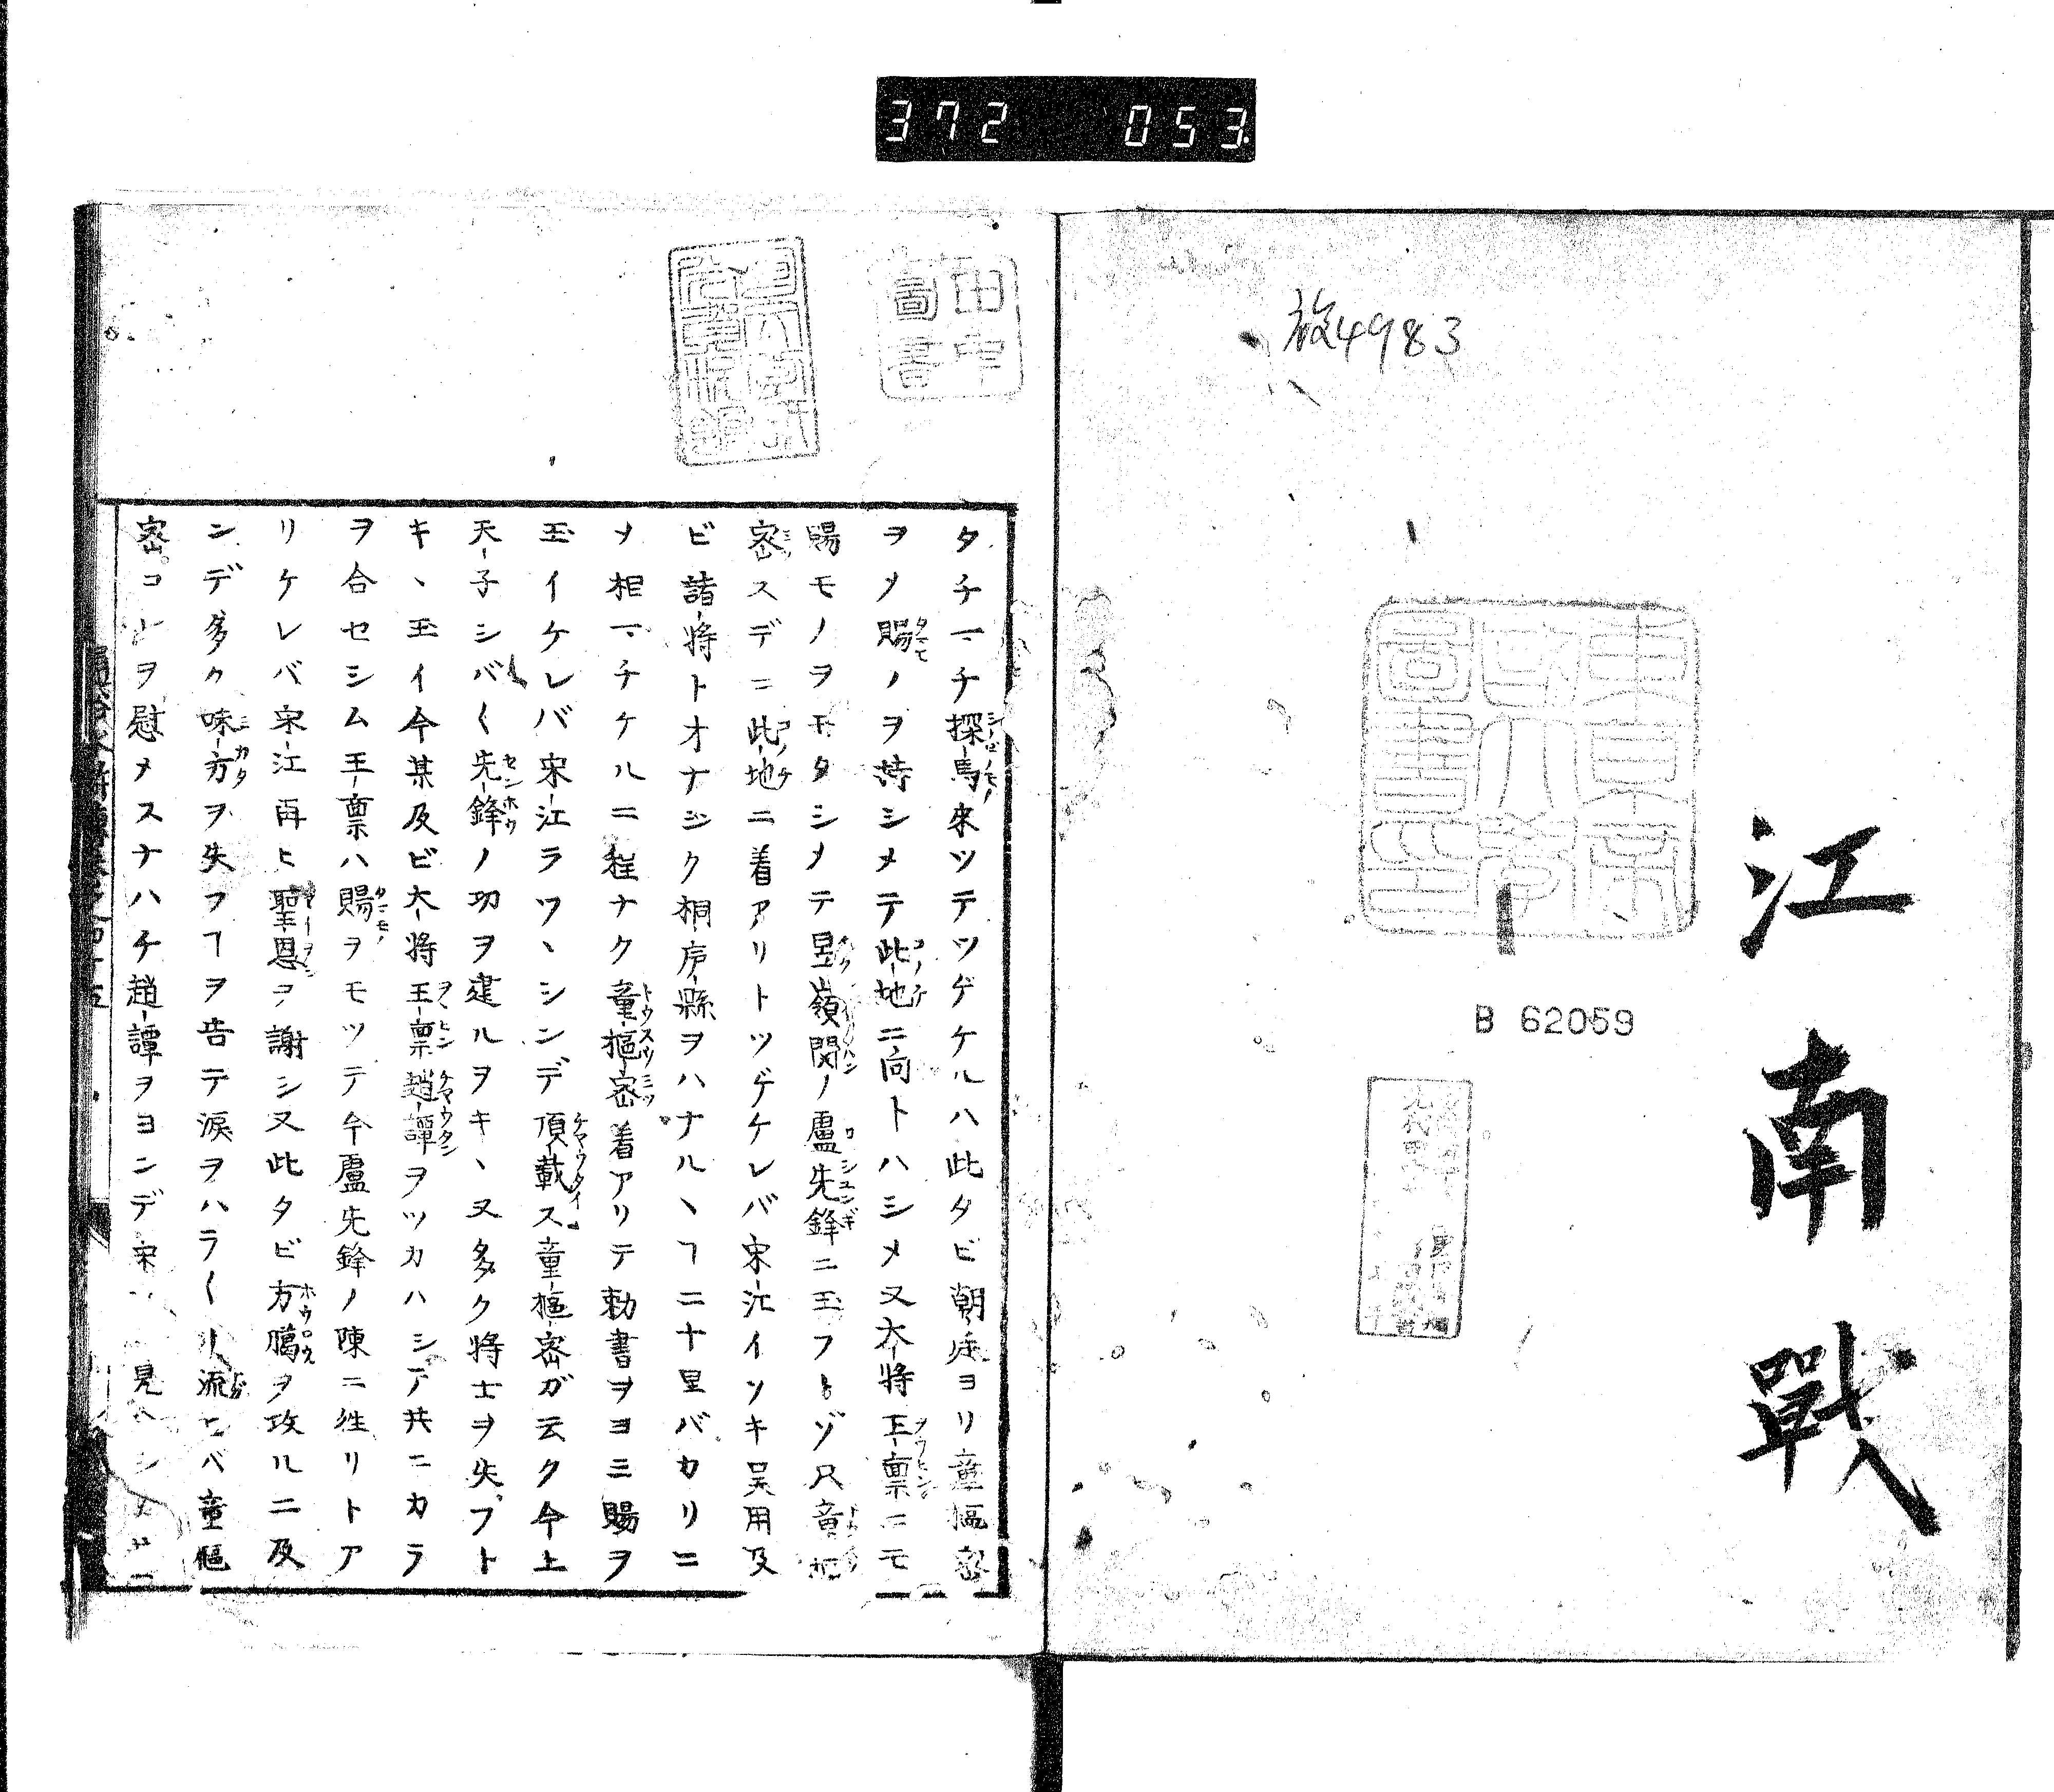 372 053
放4983
東京
帝國大學
圖書印
B 62059
江南戰
田中
圖書
タチマチ探馬來ツテツゲケルハ此タビ朝廷ヨリ童樞密
ヲメ賜ノヲ持シメテ此地ニ向トハシメ又大將王禀ニモ
賜モノヲモタシメテ昱嶺関ノ盧先鋒ニ玉フトゾ只童樞
密スデニ此地ニ着アリトツゲケレバ宋江イソキ吴用及
ビ諸將トオナジク桐庐縣ヲハナルヽヿ二十里バカリニ
メ相マチケルニ程ナク童樞密着アリテ勅書ヲヨミ賜ヲ
玉イケレバ宋江ラツヽシンデ頂戴ス童樞密ガ云ク今上
天子シバ〱先鋒ノ功ヲ建ルヲキヽ又多ク將士ヲ失フト
キヽ玉イ今某及ビ大將王禀趙譚ヲツカハシテ共ニカラ
ヲ合セシム王禀ハ賜ヲモツテ今盧先鋒ノ陳ニ徃リトア
リケレバ宋江再ヒ聖恩ヲ謝シ又此タビ方臈ヲ攻ルニ及
ンデ多ク味方ヲ失フヿヲ告テ涙ヲハラ〱ト流セバ童樞
密コレヲ慰メスナハチ趙譚ヲヨンデ宋 見